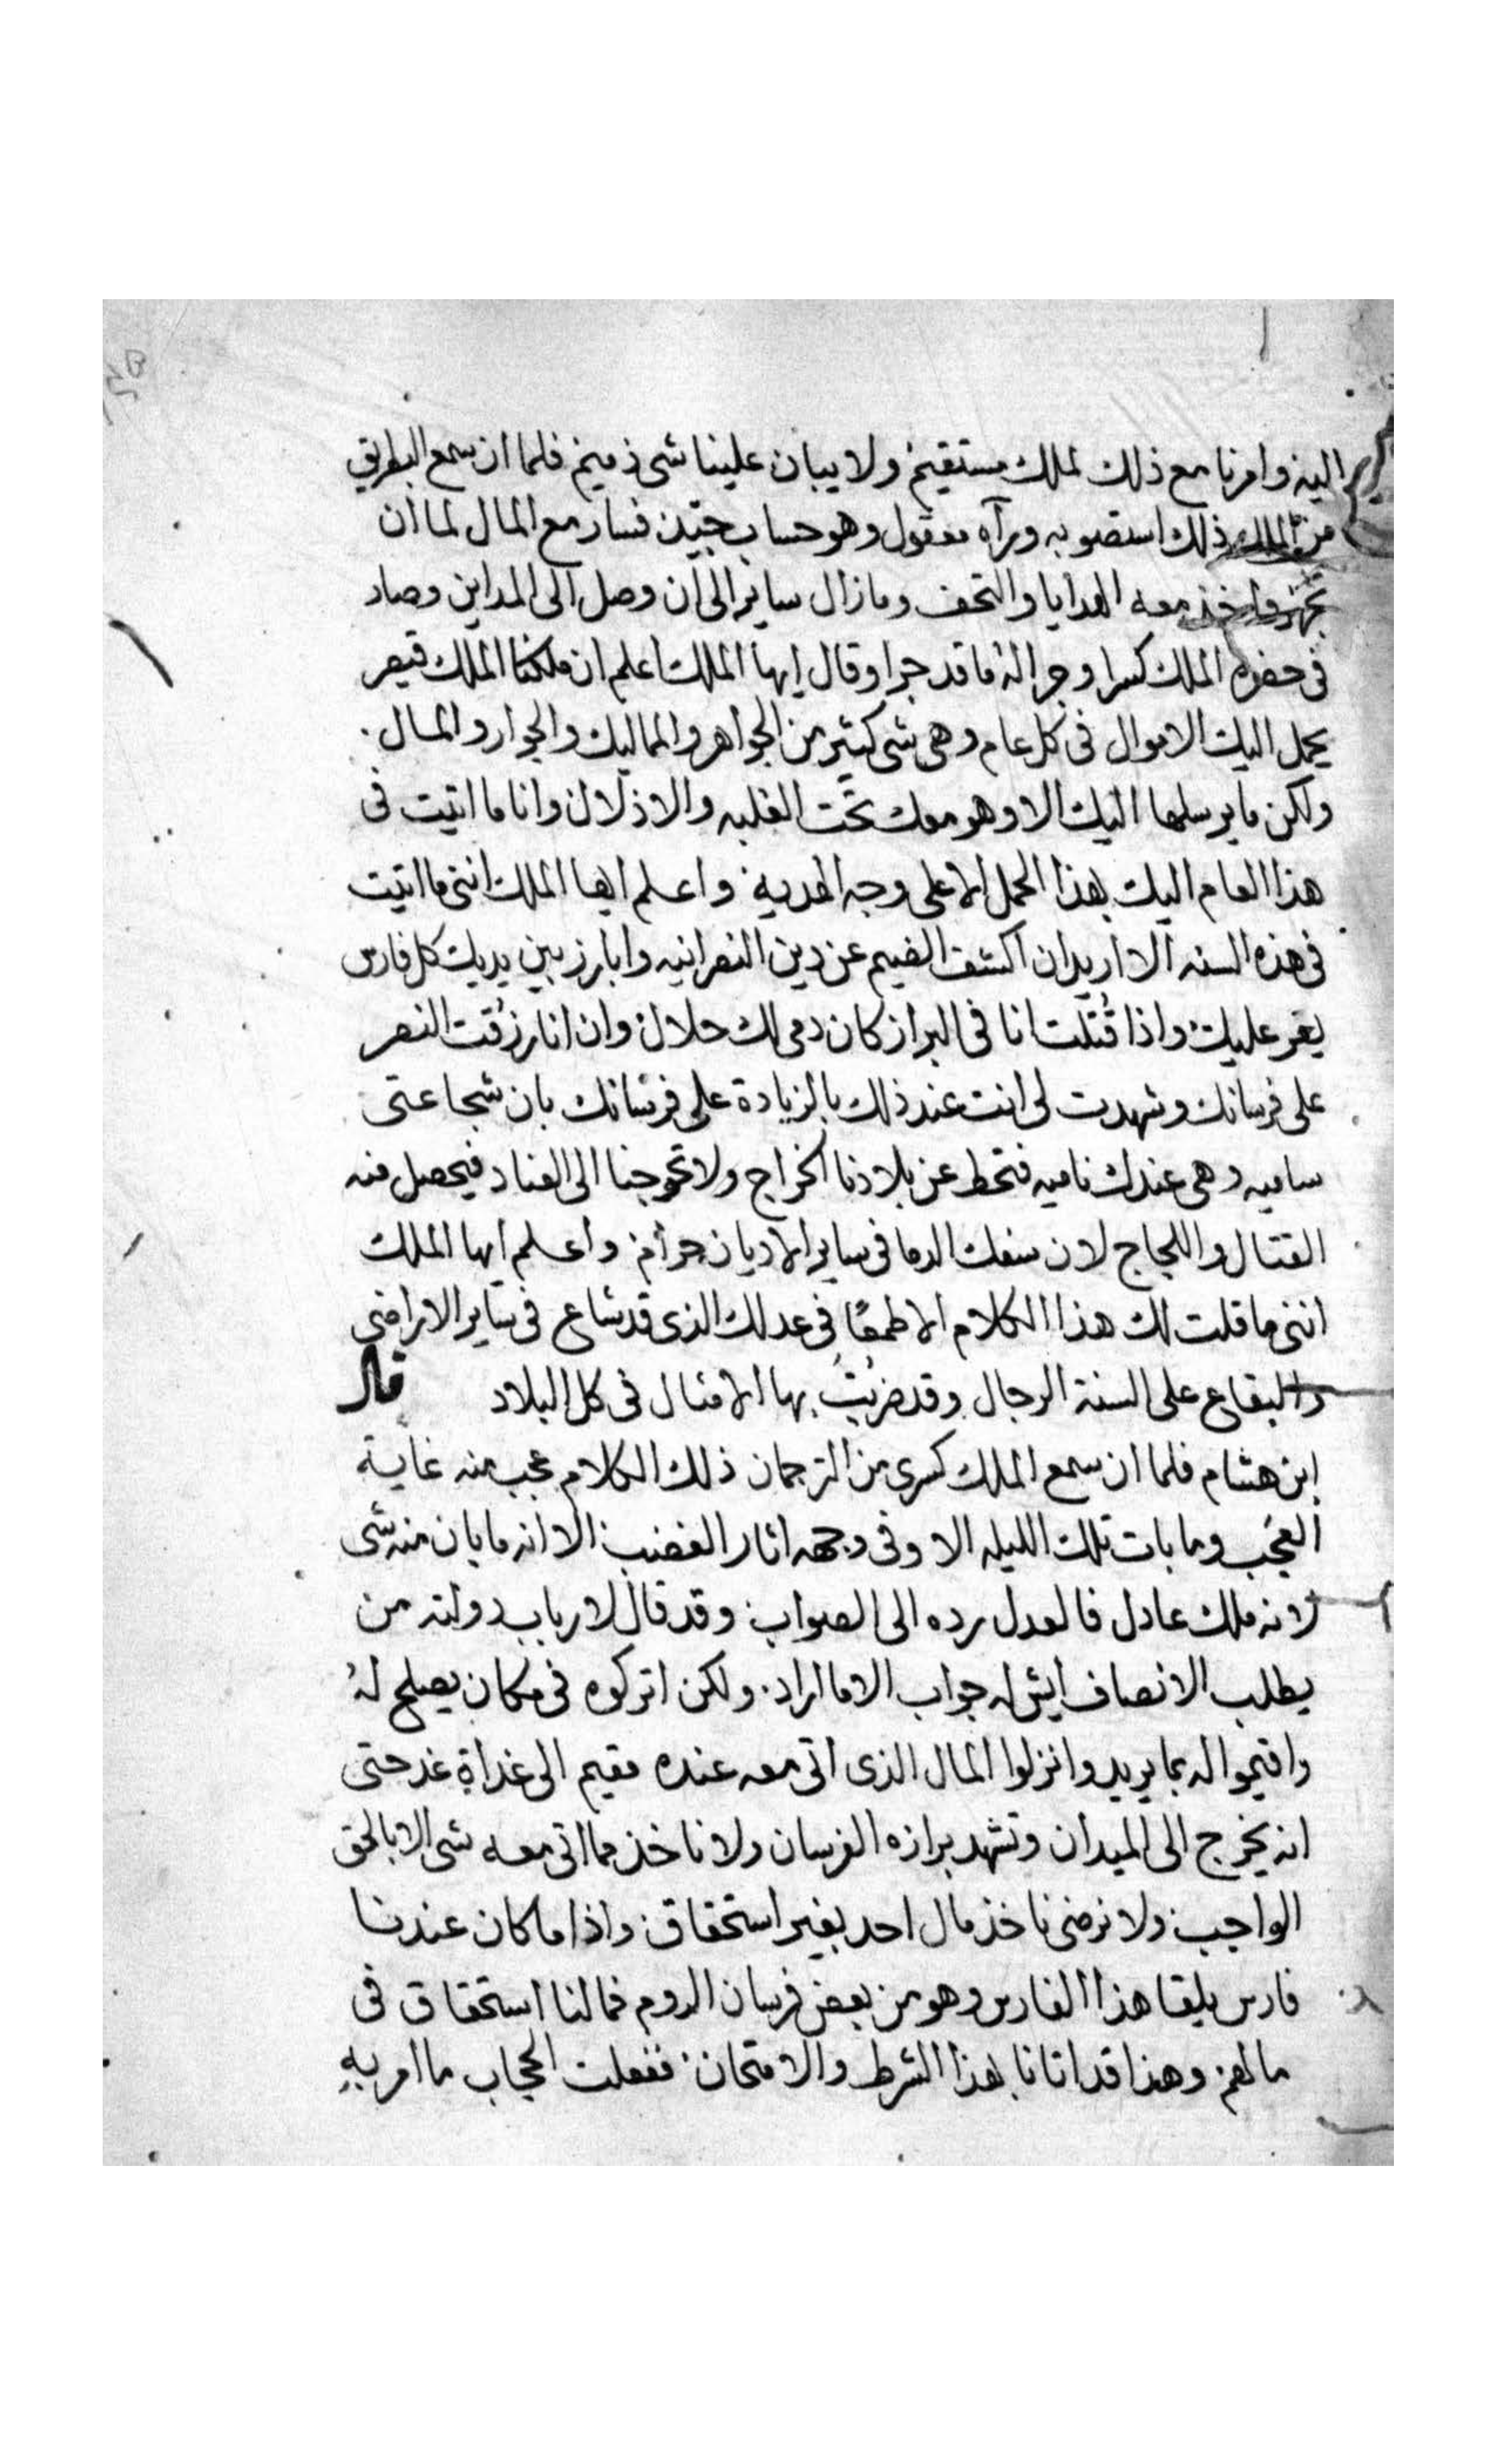 اليه وامرنا مع ذلك لملك مستقيم ولا يبان علينا شى ذميم فلما ان سمع البطريق
من الملك ذلك استصوبه ورآه معقول وهو حساب جيّد فسار مع المال لما ان
تجهز واخذ معه الهدايا والتحف ومازال ساير الى ان وصل الى المداين وصار
فى حضرة الملك كسرا وجرا له ما قد جرا وقال ايها الملك اعلم ان ملكنا الملك قيصر
يحمل اليك الاموال فى كل عام وهى شى كثير من الجواهر والمماليك والجوار والمال .
ولكن ما يرسلها اليك الا وهو معك تحت الغلبه والاذلال وانا ما اتيت فى
هذا العام اليك بهذا الحمل الا على وجه الهدية واعلم ايها الملك اننى ما اتيت
فى هذه السنه الا اريد ان اكشف الضيم عن دين النصرانيه وابارز بين يديك كل فارس
يعز عليك واذا قُتلت انا فى البراز كان دمى لك حلال وان انا رزقت النصر
على فرسانك وشهدت لى انت عند ذلك بالزيادة على فرسانك بان شجاعتى
ساميه وهى عندك ناميه فتحط عن بلادنا الخراج ولا تحوجنا الى العناد فيحصل منه
القتال واللجاج لان سفك الدما فى ساير الاديان حرام واعلم ايها الملك
اننى ما قلت لك هذا الكلام الا طمعًا فى عدلك الذى قد شاع فى ساير الاراضى
والبقاع على السنة الرجال وقد ضربت بها الامثال فى كل البلاد قال
ابن هشام فلما ان سمع الملك كسرى من الترجمان ذلك الكلام عجب منه غاية
العجب وما بات تلك الليله الا وفى وجهه اثار الغضب الا انه ما بان منه شى
لانه ملك عادل فالعدل رده الى الصواب وقد قال لارباب دولته من
يطلب الانصاف ايش له جواب الا ما اراد . ولكن اتركوه فى مكان يصلح لهُ
واقيموا له بما يريد وانزلوا المال الذى اتى معه عنده مقيم الى غداة غد حتى
انه يخرج الى الميدان وتشهد برازه الفرسان ولا ناخذ مما اتى معه شى الا بالحق
الواجب ولا نرضى ناخذ مال احد بغير استحقاق واذا ما كان عندنا
فارس يلقا هذا الفارس وهو من بعض فرسان الروم فما لنا استحقاق فى
مالهم وهذا قد اتانا بهذا الشرط والامتحان ففعلت الحجاب ما امر بهِ